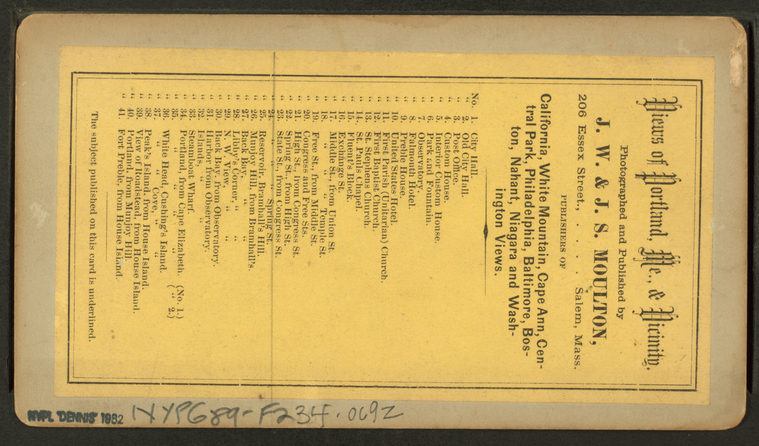 Views of Portland, Me., & Vicinity.
Photographed and Published by
J. W. & J. S. MOULTON,
206 Essex Street, . . . . . Salem, Mass.
PUBLISHERS OF
California, White Mountain, Cape Ann, Cen-
tral Park, Philadelphia, Baltimore, Bos-
ton, Nahant, Niagara and Wash-
ington Views.
No. 1. City Hall.
" 2. Old City Hall.
" 3. Post Office.
" 4. Custom House.
" 5. Interior Custom House.
" 6. Park and Fountain.
" 7. Observatory.
" 8. Falmouth Hotel.
" 9. Preble House.
" 10. United States Hotel.
" 11. First Parish (Unitarian) Church.
" 12. First Baptist Church.
" 13. St. Stephens Church.
" 14. St. Pauls Chapel.
" 15. Fluent's Block.
" 16. Exchange St.
" 17. Middle St., from Union St.
" 18. " " " Temple St.
" 19. Free St., from Middle St.
" 20. Congress and Free Sts.
" 21. High St., from Congress St.
" 22. Spring St., from High St.
" 23. State St., from Congress St.
" 24. " " " Spring St.
" 25. Reservoir, Bramhall's Hill.
" 26. Munjoy Hill, from Bramhall's.
" 27. Back Bay, " "
" 28. Libby's Corner, " "
" 29. N. View, " "
" 30. Back Bay, from Observatory.
" 31. Harbor from Observatory.
" 32. Islands, " "
" 33. Steamboat Wharf.
" 34. Portland, from Cape Elizabeth. (No. 1.)
" 35. " " " " ( " 2.)
" 36. White Head, Cushing's Island.
" 37. " Cove, " "
" 38. Peak's Island, from House Island.
" 39. View of Roadstead, from House Island.
" 40. Portland, from Munjoy Hill.
" 41. Fort Preble, from House Island.
The subject published on this card is underlined.
NYPL "DENNIS" 1982
NYPG89-F234.069Z